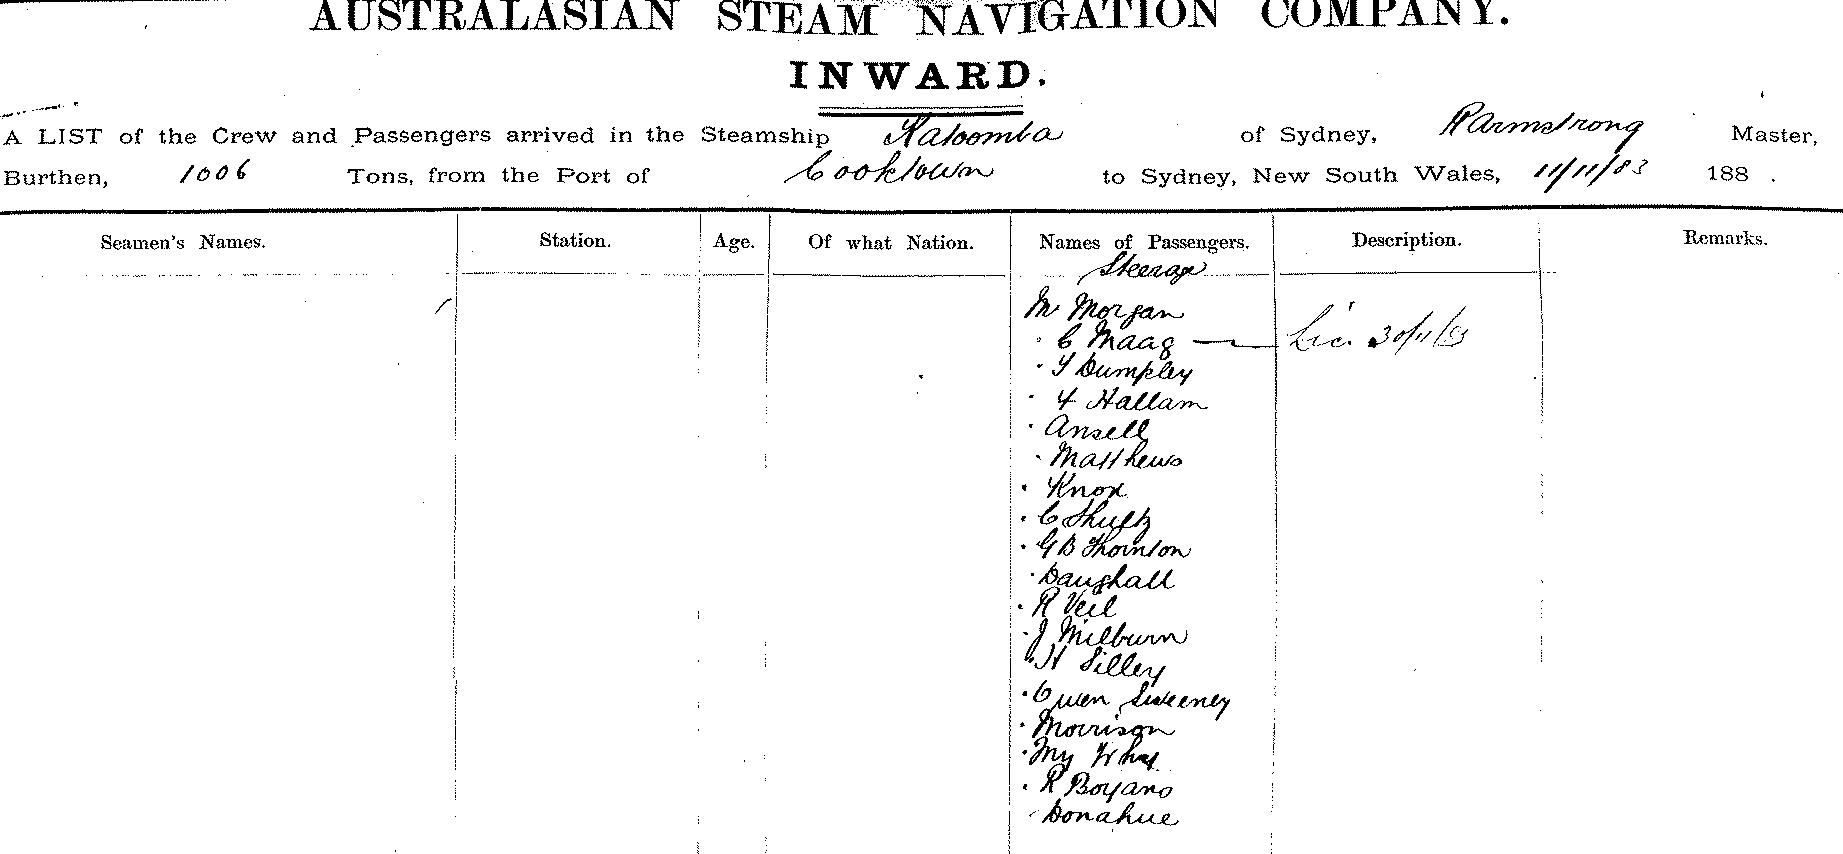 AUSTRALASIAN STEAM NAVIGATION COMPANY.
INWARD.
A LIST of the Crew and Passengers arrived in the Steamship Katoomba of Sydney, R Armstrong Master,
Burthen, 1006 Tons, from the Port of Cooktown to Sydney, New South Wales, 11/11/83 188 .
Seamen's Names. Station. Age. Of what Nation. Names of Passengers. Description. Remarks.
Steerage
Mr Morgan
" C Maag — Lic. 30/11/83
" Dumpley
" Hallam
" Ansell
" Matthews
" Knox
" C Shultz
" G B Thornton
" Daughall
" R Veil
" J Milburn
" H Lilley
" Owen Sweeney
" Morrison
" My
" R Boyano
" Donahue